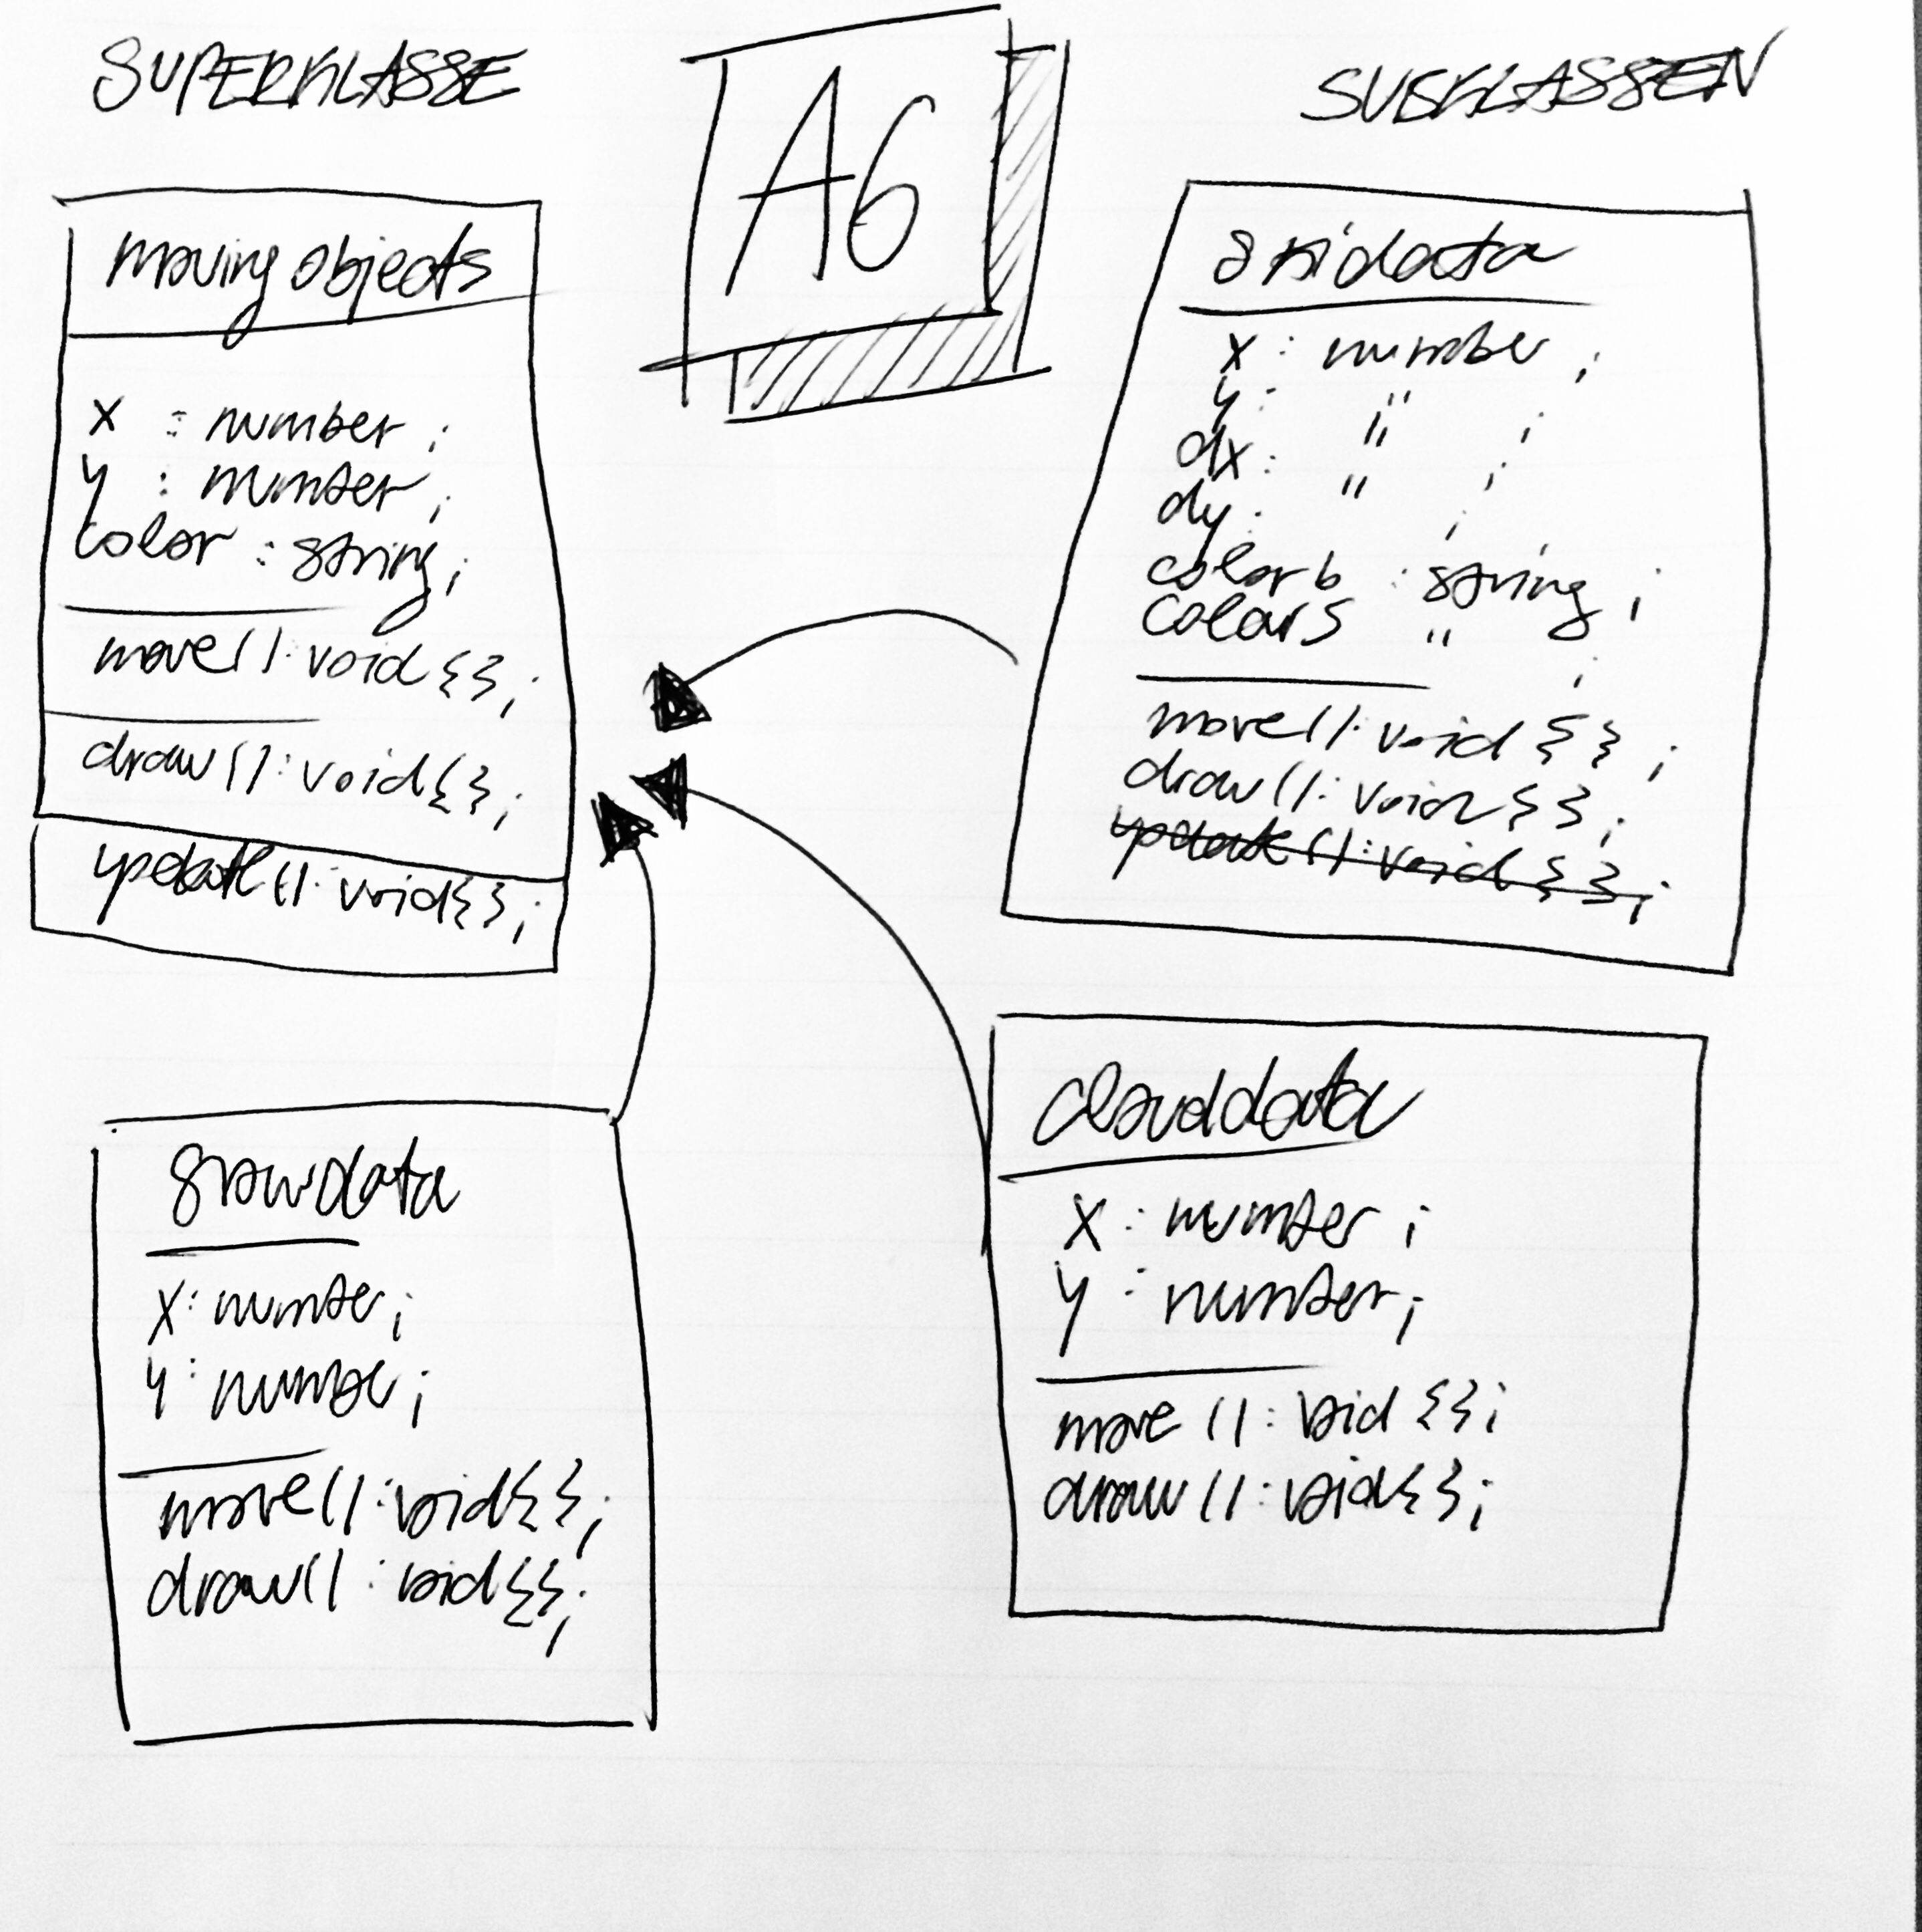 SUPERKLASSE
A6
SUBKLASSEN
moving objects
x : number ;
y : number ;
color : string ;
move() : void {} ;
draw() : void {} ;
update() : void {} ;
skidata
x : number ;
y : " ;
dx : " ;
dy : " ;
colorb : string ;
colors " ;
move() : void {} ;
draw() : void {} ;
update() : void {} ;
snowdata
x : number ;
y : number ;
move() : void {} ;
draw() : void {} ;
clouddata
x : number ;
y : number ;
move() : void {} ;
draw() : void {} ;